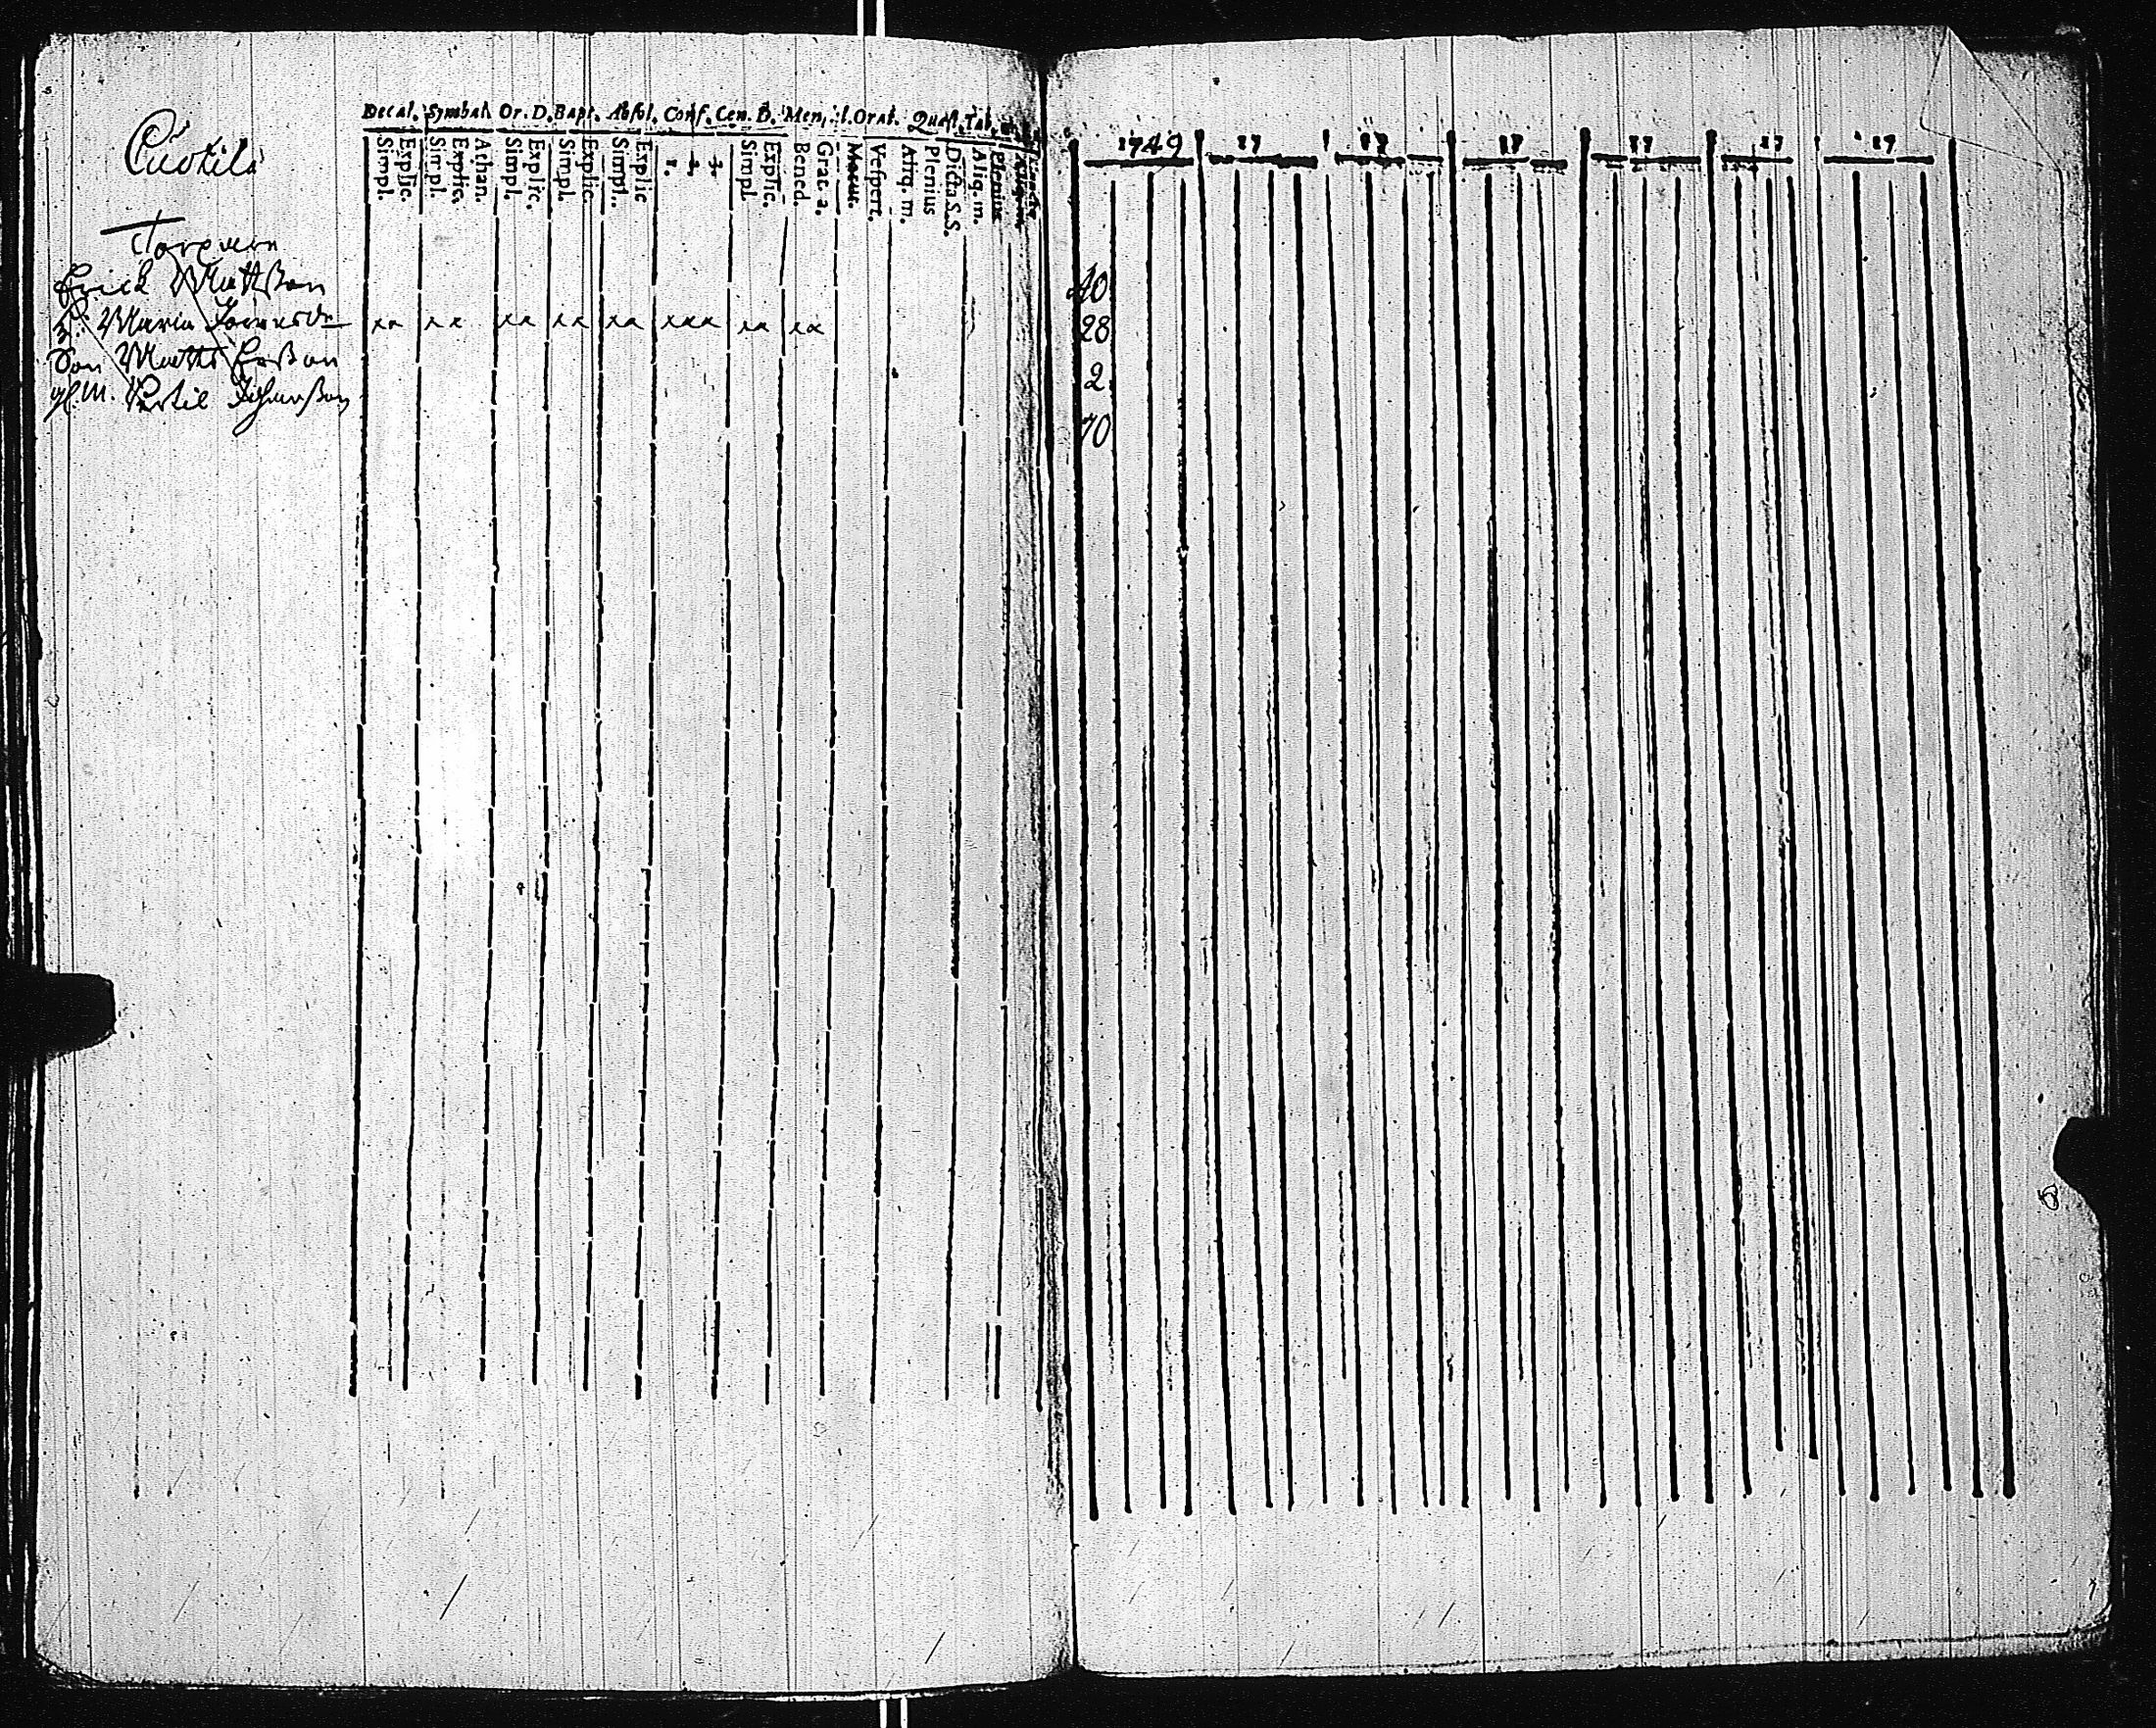 Decal. Symbol. Or. D. Bapt. Absol. Conf. Cen. D. Men. Orat. Quæst. Tab.
Simpl. Explic. Simpl. Explic. Athan. Simpl. Explic. Simpl. Explic. Simpl. Explic 1. 2. 3. Simpl Explic. Bened. Grat. a. Matut. Vespert. Aliq. m. Plenius Dicta S.S. Aliq. m. Plenius
1749 17 17 17 17 17 17
Torparen
Erick Mattsson 40
H: Maria xx xx xx xx xx xxx xx xx 28
Son Matts Ersson 2
gl. m. Bertil Johansson 70